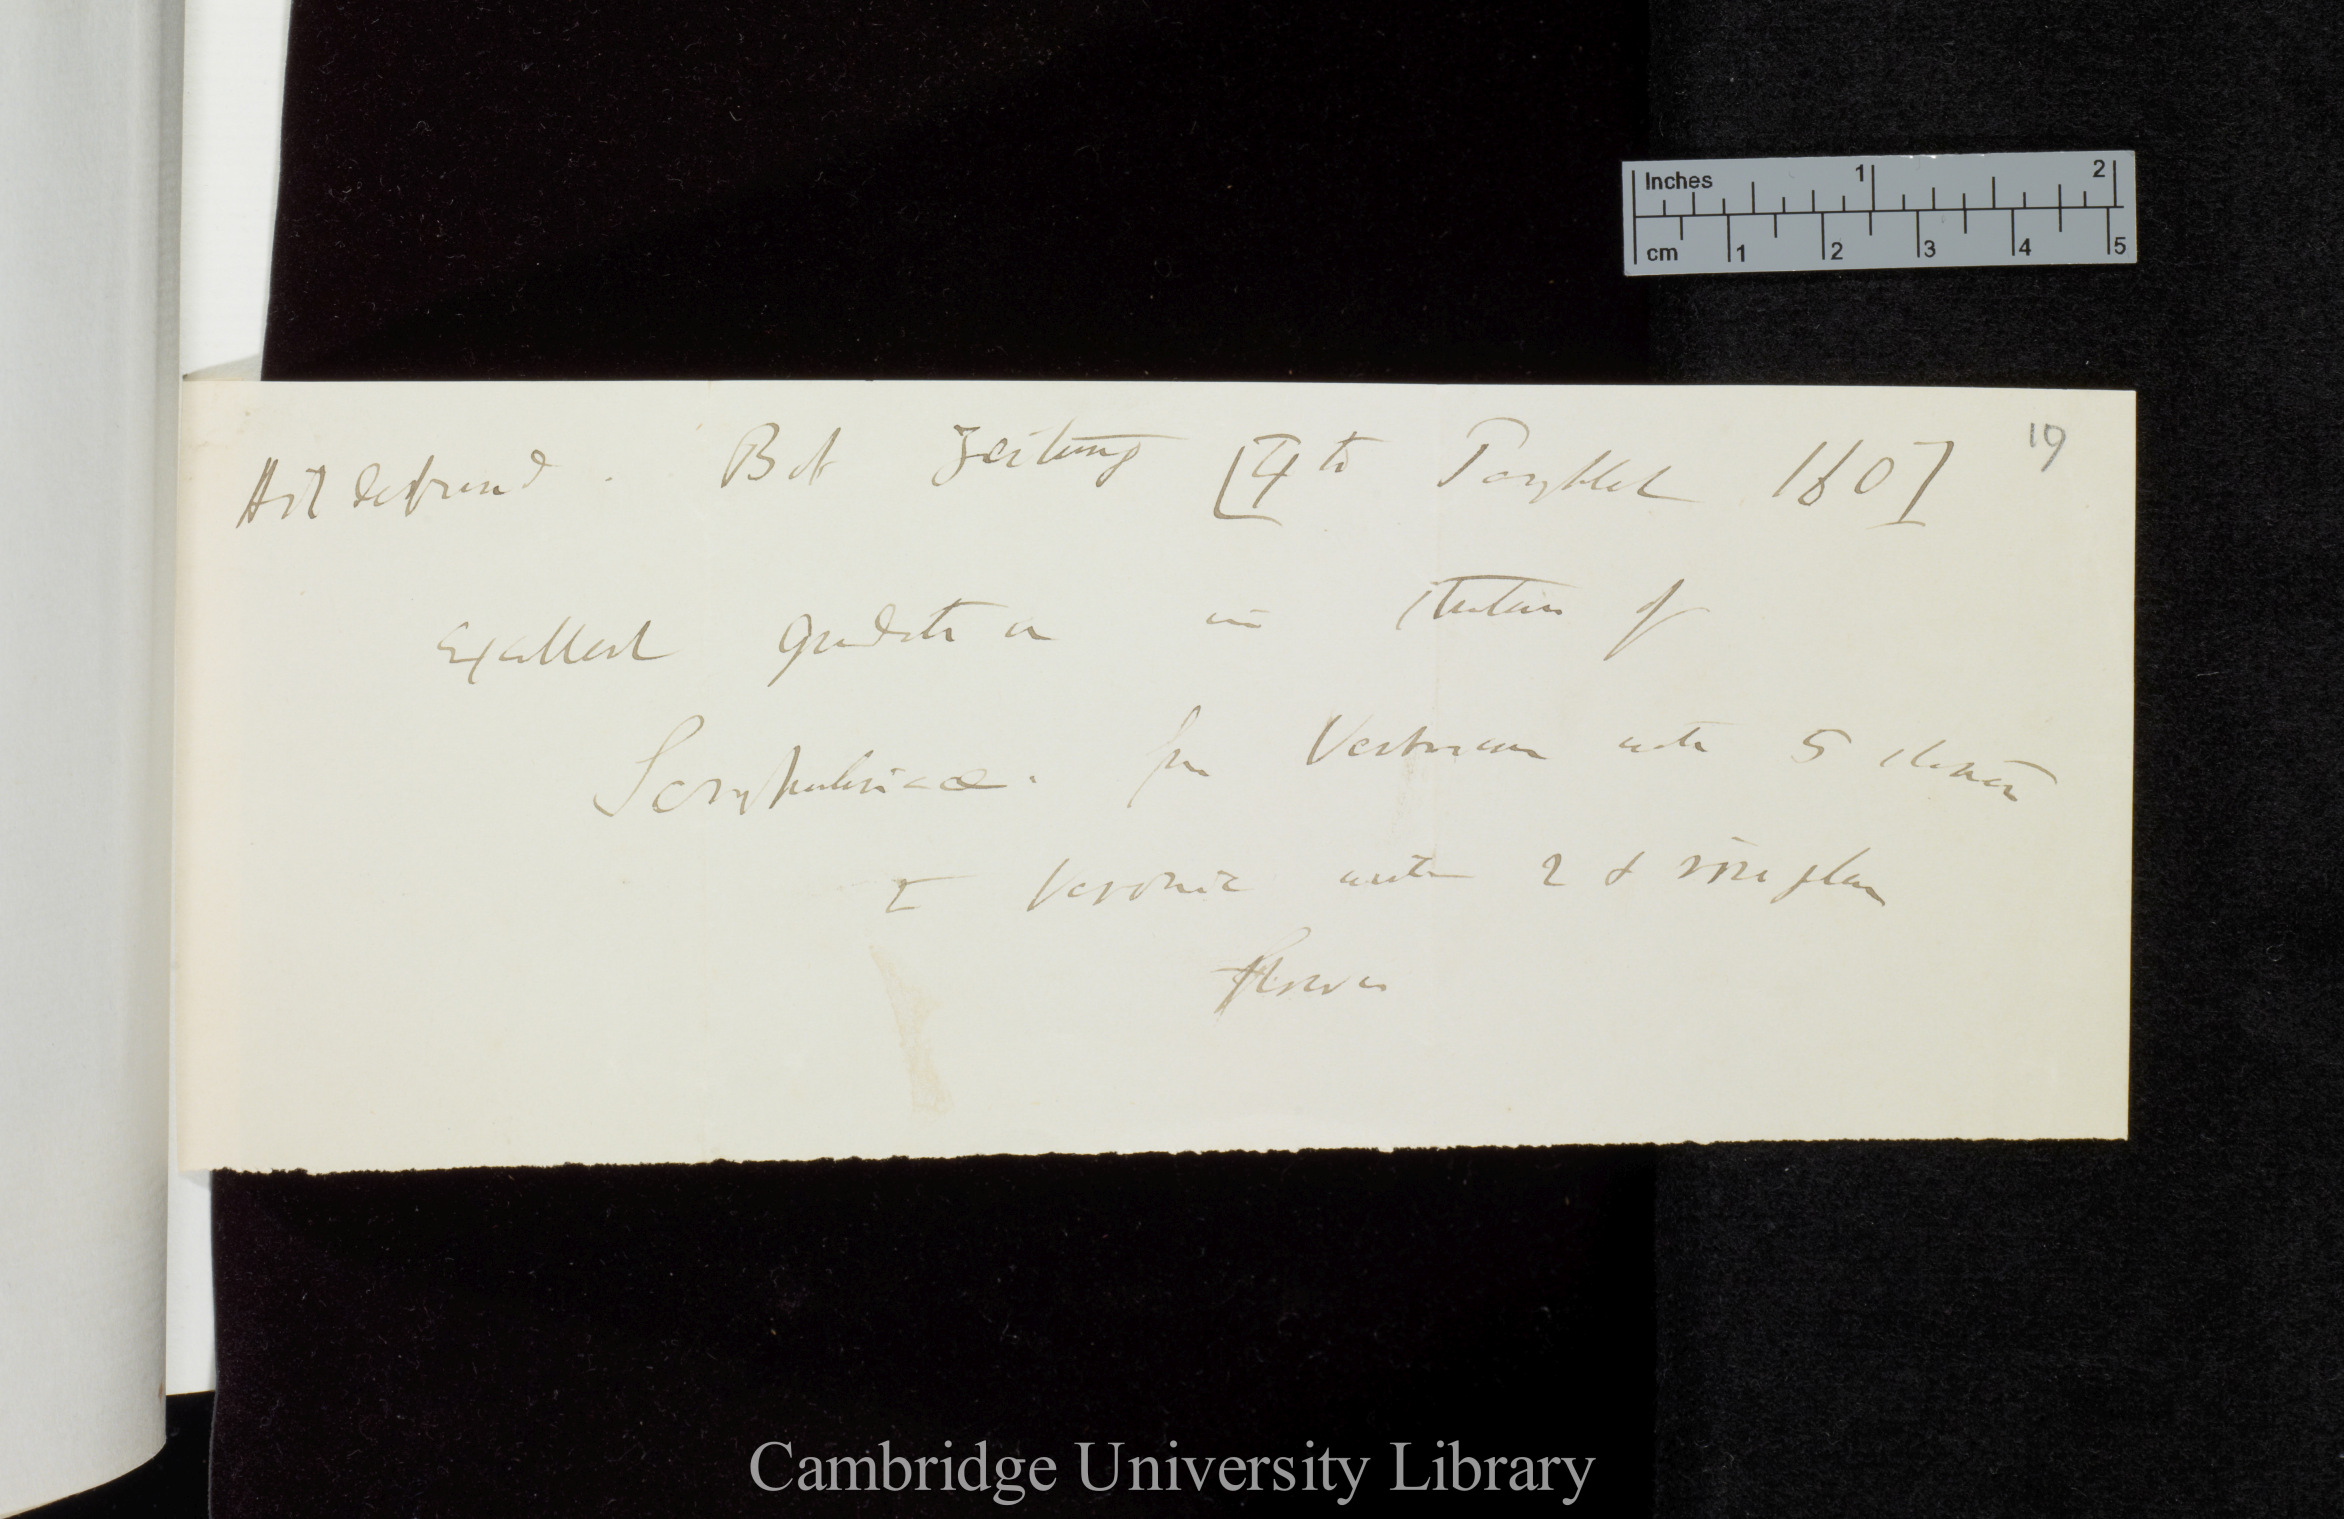 Inches 1 2
cm 1 2 3 4 5
Hildebrand. Bot Zeitung [4th Pamphlet 160] 19
Excellent gradation in structure of
Scrophulariaceæ. from Verbascum with 5 stamens
to Veronica with 2 &
flowers
Cambridge University Library